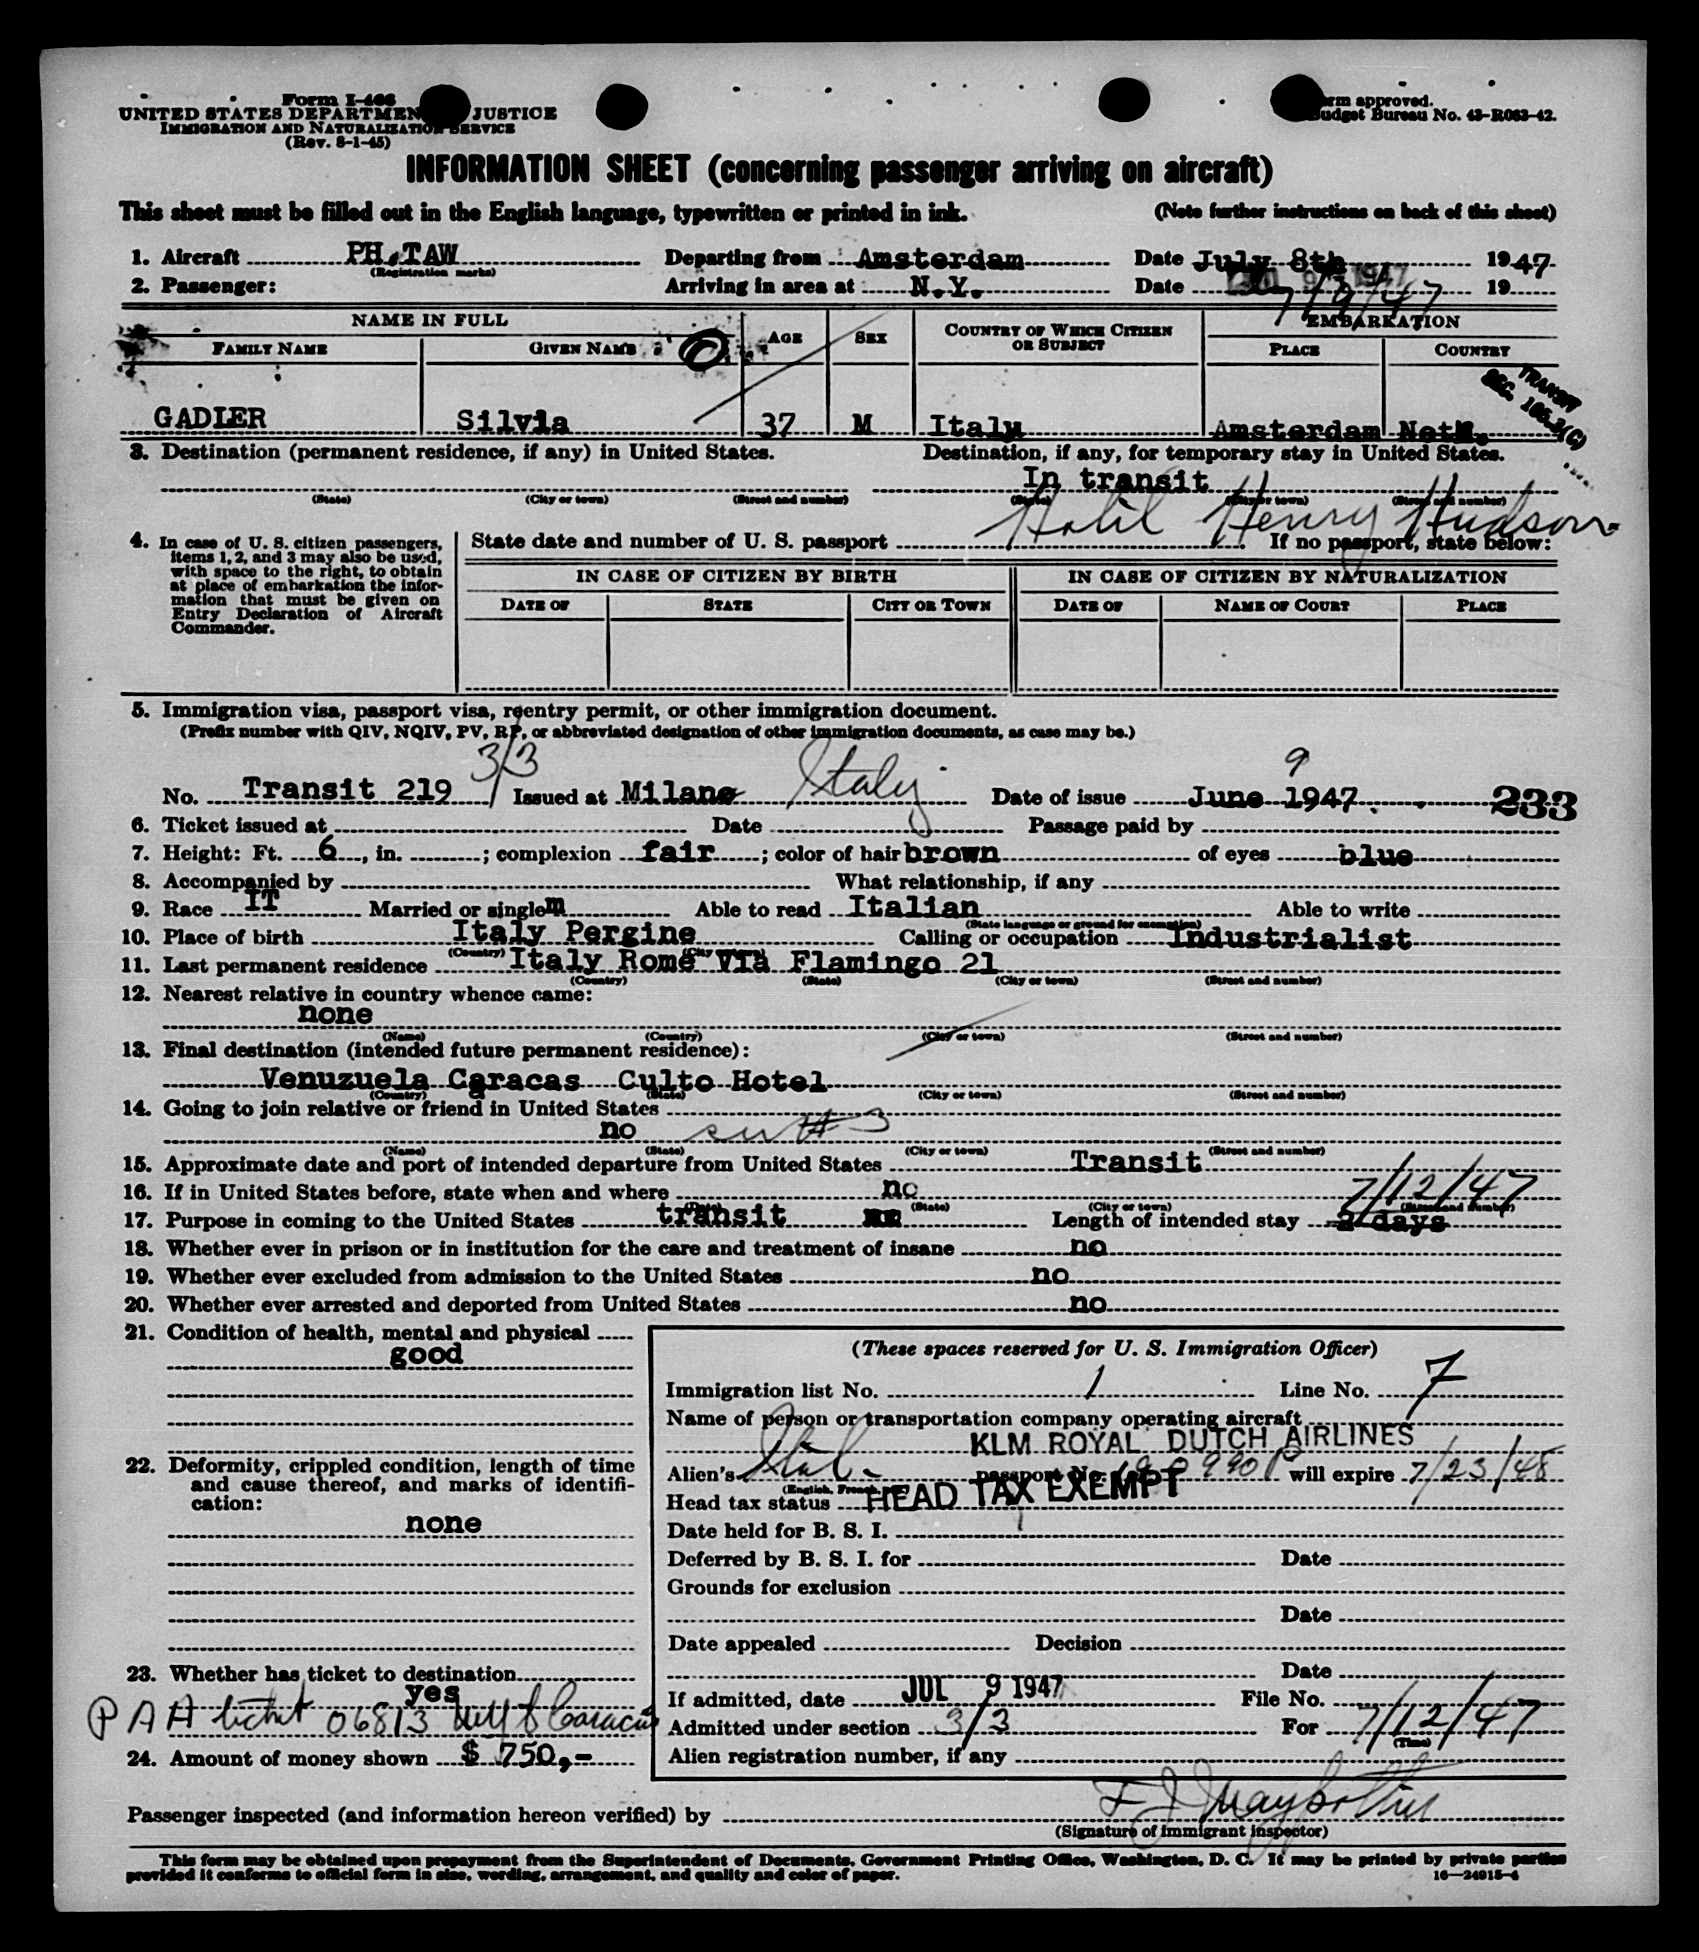 Form I-466
UNITED STATES DEPARTMENT JUSTICE
IMMIGRATION AND NATURALIZATION SERVICE
(Rev. 8-1-45)
Form approved.
Budget Bureau No. 43-R063-42.
INFORMATION SHEET (concerning passenger arriving on aircraft)
This sheet must be filled out in the English language, typewritten or printed in ink. (Note further instructions on back of this sheet)
1. Aircraft PH-TAW Departing from Amsterdam Date July 8th 1947
(Registration marks)
2. Passenger: Arriving in area at N.Y. Date 7/9/47 19
NAME IN FULL AGE SEX COUNTRY OF WHICH CITIZEN OR SUBJECT EMBARKATION
FAMILY NAME GIVEN NAME PLACE COUNTRY
TRANSIT
SEC. 105.3(C)
GADLER Silvia 37 M Italy Amsterdam Neth.
3. Destination (permanent residence, if any) in United States. Destination, if any, for temporary stay in United States.
In transit
(State) (City or town) (Street and number) (State) (City or town) (Street and number)
Hotel Henry Hudson
4. In case of U. S. citizen passengers, items 1, 2, and 3 may also be used, with space to the right, to obtain at place of embarkation the information that must be given on Entry Declaration of Aircraft Commander.
State date and number of U. S. passport If no passport, state below:
IN CASE OF CITIZEN BY BIRTH IN CASE OF CITIZEN BY NATURALIZATION
DATE OF STATE CITY OR TOWN DATE OF NAME OF COURT PLACE
5. Immigration visa, passport visa, reentry permit, or other immigration document.
(Prefix number with QIV, NQIV, PV, RP, or abbreviated designation of other immigration documents, as case may be.)
3/3
No. Transit 219 Issued at Milano Italy Date of issue June 9 1947. 233
6. Ticket issued at Date Passage paid by
7. Height: Ft. 6, in. ; complexion fair ; color of hair brown of eyes blue
8. Accompanied by What relationship, if any
9. Race IT Married or single m Able to read Italian Able to write
(State language or ground for exemption)
10. Place of birth Italy Pergine Calling or occupation Industrialist
(Country) (City
11. Last permanent residence Italy Rome Via Flamingo 21
(Country) (State) (City or town) (Street and number)
12. Nearest relative in country whence came:
none
(Name) (Country) (City or town) (Street and number)
13. Final destination (intended future permanent residence):
Venuzuela Caracas Culto Hotel
(Country) (State) (City or town) (Street and number)
14. Going to join relative or friend in United States
no see #3
(Name) (State) (City or town) (Street and number)
15. Approximate date and port of intended departure from United States Transit
16. If in United States before, state when and where no 7/12/47
(Date) (State) (City or town) (Street and number)
17. Purpose in coming to the United States transit Length of intended stay 2 days
18. Whether ever in prison or in institution for the care and treatment of insane no
19. Whether ever excluded from admission to the United States no
20. Whether ever arrested and deported from United States no
21. Condition of health, mental and physical
good
22. Deformity, crippled condition, length of time and cause thereof, and marks of identification:
none
23. Whether has ticket to destination
yes
PAA ticket 06813 NY to Caracas
24. Amount of money shown $ 750,-
(These spaces reserved for U. S. Immigration Officer)
Immigration list No. 1 Line No. 7
Name of person or transportation company operating aircraft
KLM ROYAL DUTCH AIRLINES
Alien's Ital. passport No. 190990P will expire 7/23/48
(English, French,
Head tax status HEAD TAX EXEMPT
Date held for B. S. I.
Deferred by B. S. I. for Date
Grounds for exclusion
Date
Date appealed Decision
Date
If admitted, date JUL 9 1947 File No.
Admitted under section 3/3 For 7/12/47
(Time)
Alien registration number, if any
Passenger inspected (and information hereon verified) by
(Signature of immigrant inspector)
This form may be obtained upon prepayment from the Superintendent of Documents, Government Printing Office, Washington, D. C. It may be printed by private parties
provided it conforms to official form in size, wording, arrangement, and quality and color of paper. 16-24915-4